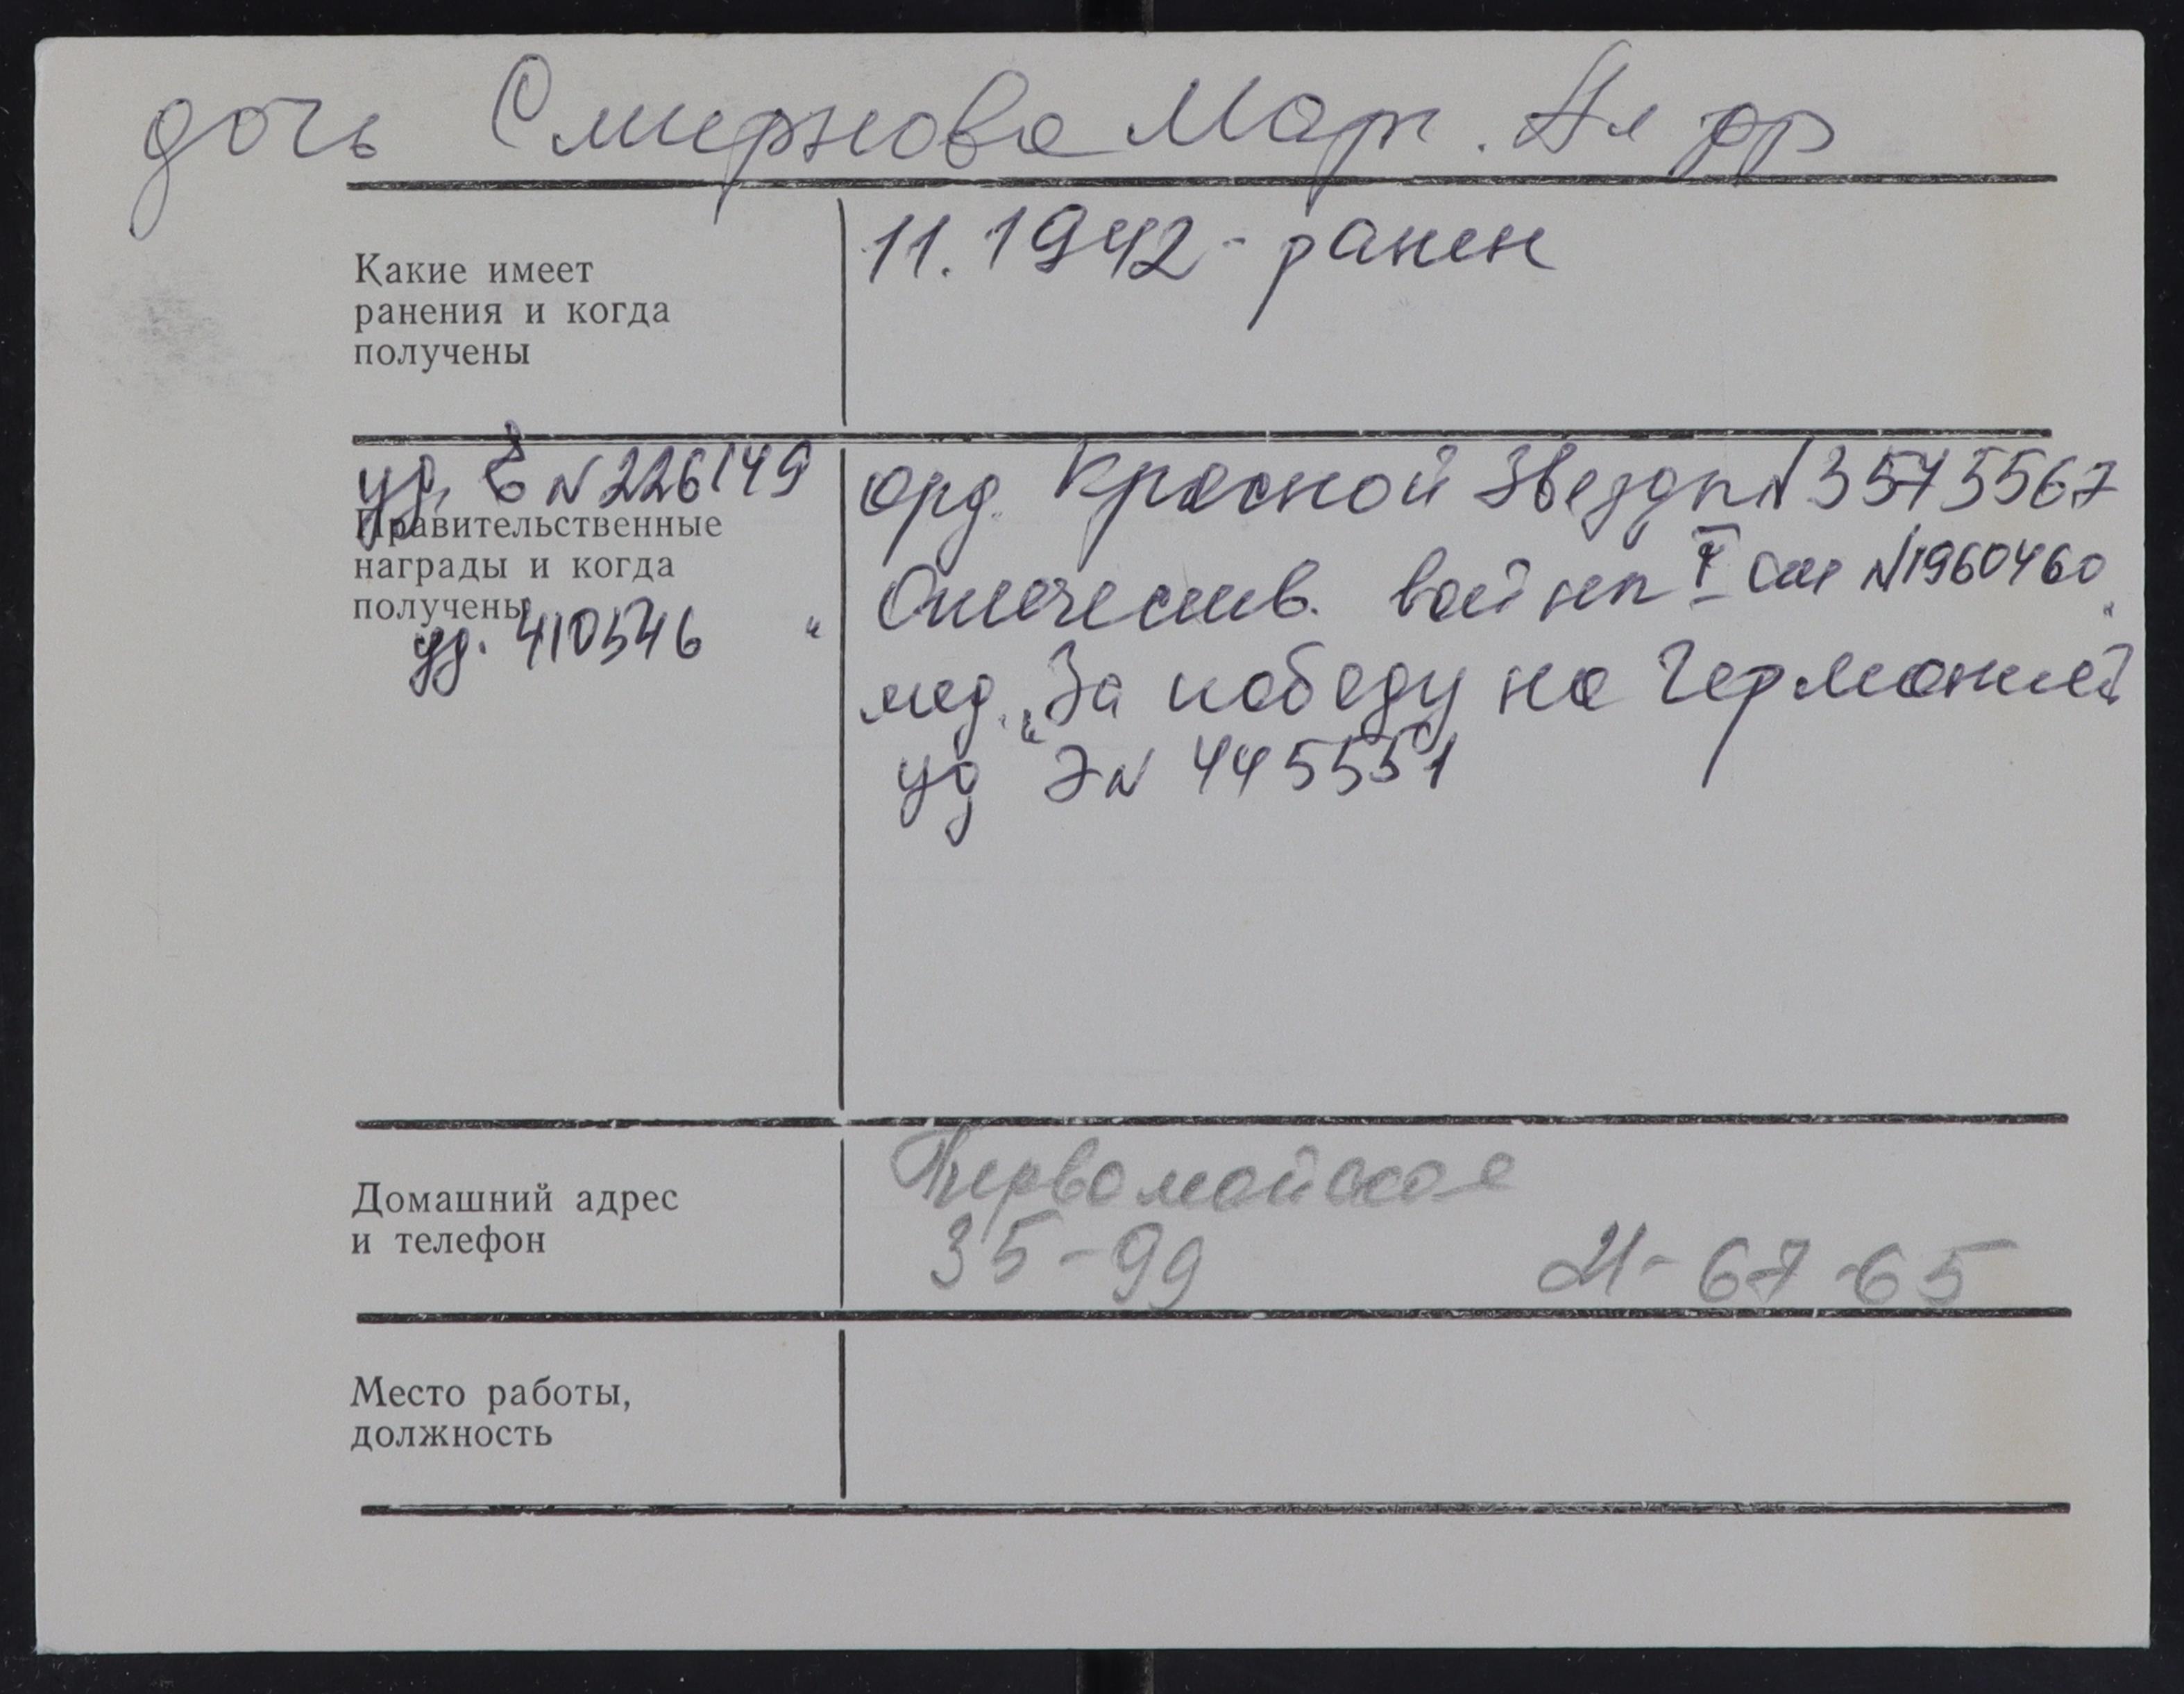 дочь Смирнова Мар. Ал-др
Какие имеет
ранения и когда
получены
11.1942 - ранен
уд. Б N 226149
Правительственные
награды и когда
получены
уд. 410546 "
орд. Красной Звезды N 3575567
Отечеств. войны I ст N1960460
мед. „За победу на Германией"
уд Э N 445551
Домашний адрес
и телефон
Первомайская
35-99 21-67-65
Место работы,
должность